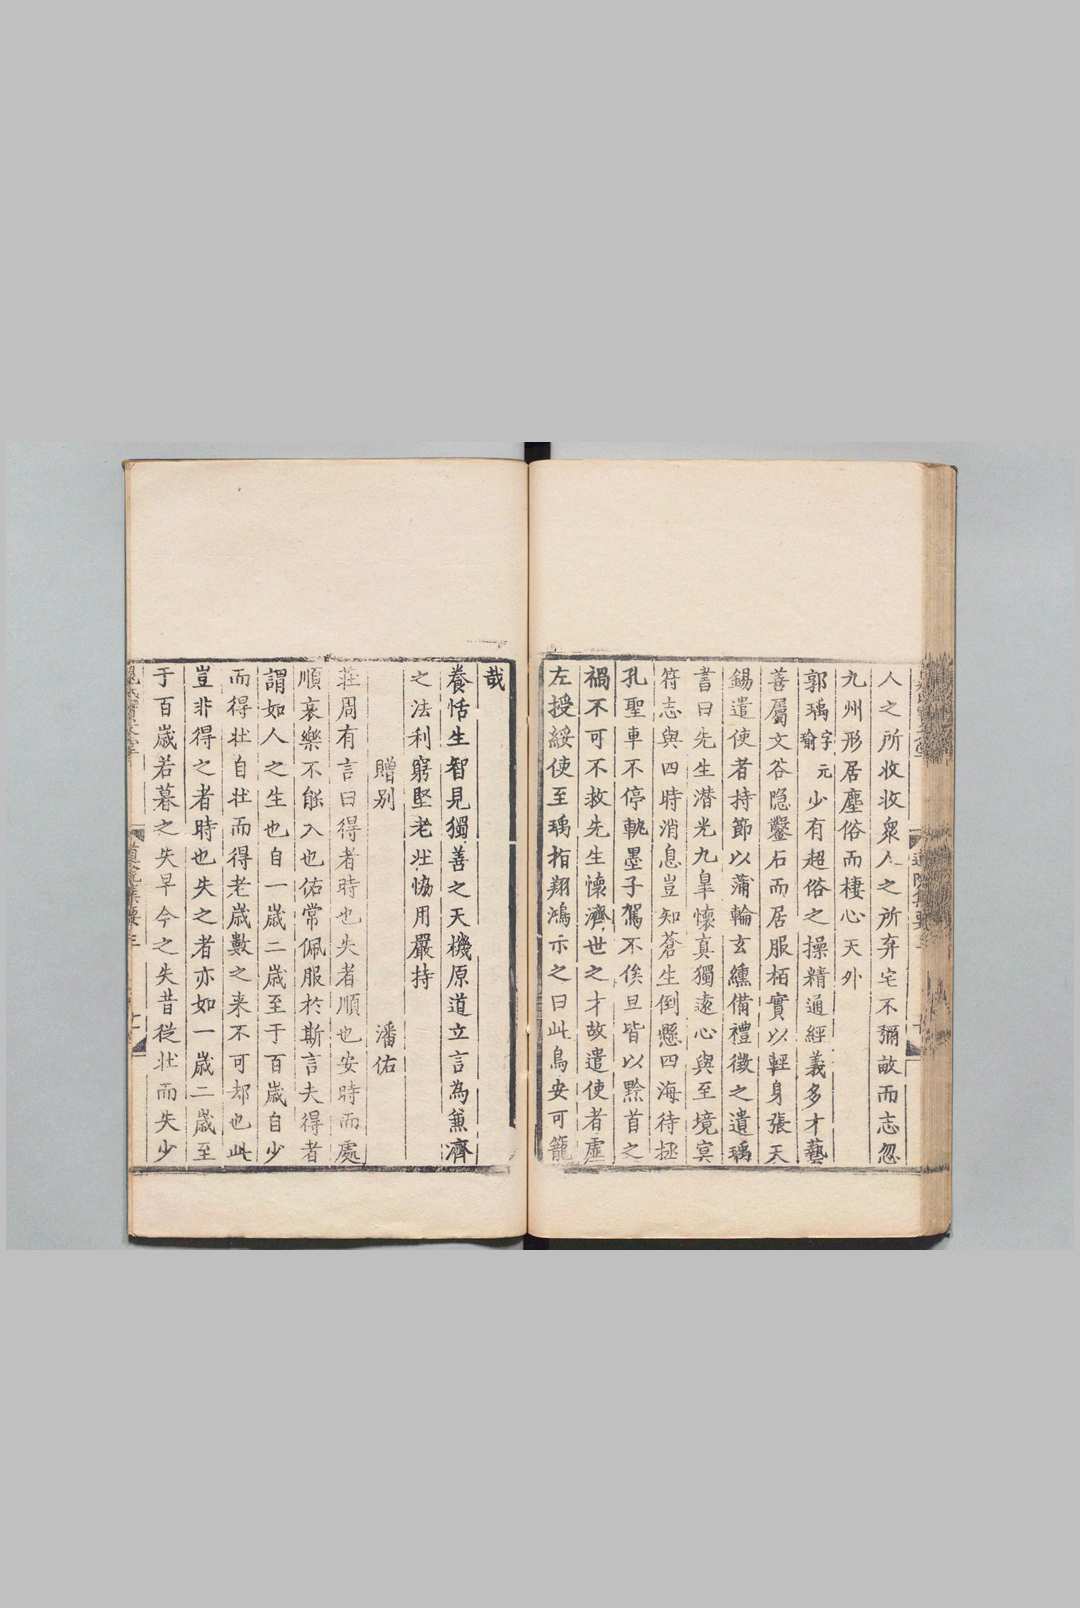 人之所收收衆人之所弃宅不彌畝而志忽
九州形居塵俗而棲心天外
郭瑀字元瑜少有超俗之操精通經義多才藝
善屬文谷隐鑿石而居服栢實以輕身張天
錫遣使者持節以蒲輪玄纁備禮徴之遺瑀
書曰先生潜光九臯懷真獨遠心與至境㝠
符志與四時消息豈知蒼生倒懸四海待拯
孔聖車不停軌墨子駕不俟旦皆以黔首之
禍不可不救先生懷濟世之才故遣使者虚
左授綏使至瑀指翔鴻示之曰此鳥安可籠
哉
養恬生智見獨善之天機原道立言為兼濟
之法利竆堅老壮恊用嚴持
贈别 潘佑
荘周有言曰得者時也失者順也安時而處
順哀樂不能入也佑常佩服於斯言夫得者
謂如人之生也自一歳二歳至于百歳自少
而得壮自壮而得老歳數之来不可却也此
豈非得之者時也失之者亦如一歳二歳至
于百歳若暮之失早今之失昔從壮而失少